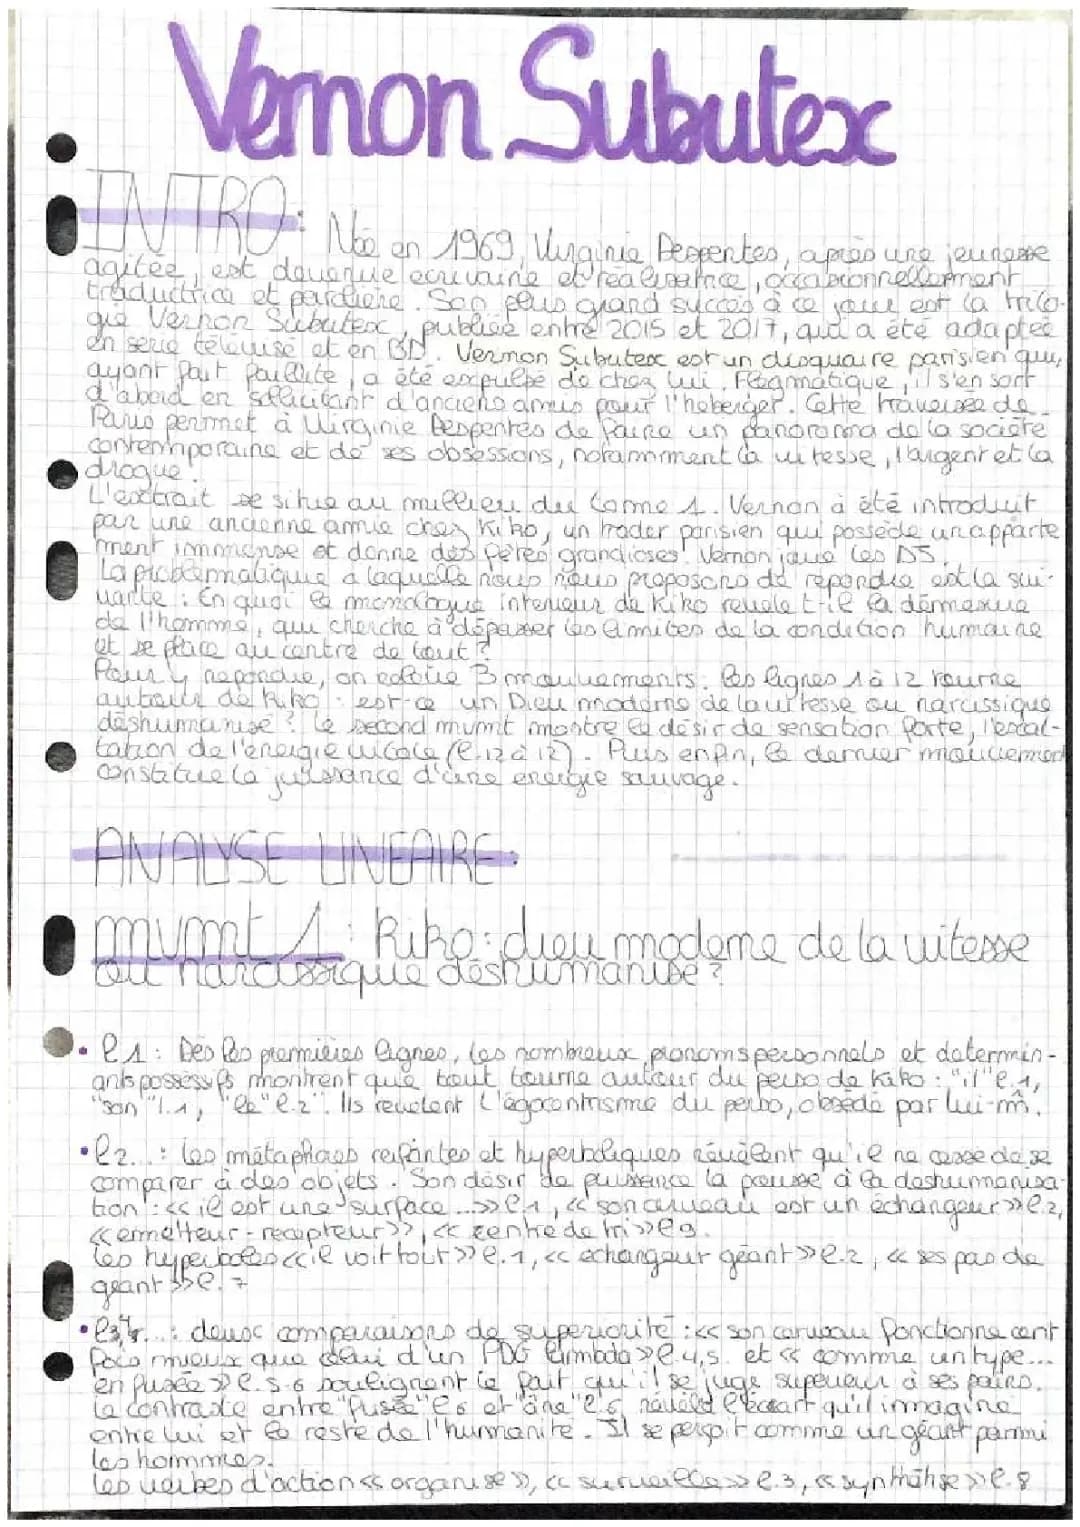 Vernon Subutex
INTRO: Née en 1969, Virginie Despentes, après une jeunesse
agitée, est devenue écrivaine et réalisatrice, occasionnellement
traductrice et parolière. Son plus grand succès à ce jour est la trilo-
gie Vernon Subutex, publiée entre 2015 et 2017, qui a été adaptée
en serie télévisé et en BD. Vernon Subutex est un disquaire parisien qui,
ayant fait faillite, a été expulsé de chez lui. Flegmatique, il s'en sort
d'abord en sollicitant d'anciens amis pour l'heberger. Cette traversée de
Paris permet à Virginie Despentes de faire un panorama de la société
contemporaine et de ses obsessions, notamment la vitesse, l'argent et la
drogue.
L'extrait se situe au millieu du tome 1. Vernon à été introduit
par une ancienne amie chez Kiko, un trader parisien qui possède un apparte
ment immense et donne des fêtes grandioses. Vernon joue les DJ.
La problématique a laquelle nous nous proposons de repondre est la sui-
vante : En quoi le monologue intérieur de Kiko revele t-il la démesure
de l'homme, qui cherche à dépasser les limites de la condition humaine
et se place au centre de tout ?
Pour y repondre, on étudie 3 mouvements : les lignes 1 à 12 tourne
autour de Kiko : est-ce un Dieu moderne de la vitesse ou narcissique
déshumanisé ? Le second mvmt montre le désir de sensation forte, l'exal-
tation de l'énergie vitale (l.12 à 17). Plus enfin, le dernier mouvement
constitue la juissance d'une energie sauvage.
ANALYSE LINEAIRE :
mvmt 1 : Kiko : dieu moderne de la vitesse
ou narcissique déshumanisé ?
• l1 : Dès les premières lignes, les nombreux pronoms personnels et determin-
ants possessifs montrent que tout tourne autour du perso de Kiko : "il" l.1,
"son" l.1, "le" l.2". Ils revelent l'égocentrisme du perso, obsédé par lui-m̂.
• l2...: les métaphores reifiantes et hyperboliques révèlent qu'il ne cesse de se
comparer à des objets. Son désir de puissance la pousse à la deshumanisa-
tion : << il est une surface ...>> l1, << son cerveau est un échangeur >> l.2,
<< emetteur-recepteur >>, << centre de tri >> l9.
Les hyperboles << il voit tout >> l.1, << echangeur géant >> l.2, << ses pas de
geant >> l.7
• l3,4...: deux comparaisons de superiorité : << son cerveau fonctionne cent
fois mieux que celui d'un PDG lambda >> l.4,5. et << comme un type...
en fusée >> l.5-6 soulignent le fait qu'il se juge superieur à ses pairs.
Le contraste entre "fusée" l6 et "âne" l.6 révèle l'écart qu'il immagine
entre lui et le reste de l'humanité. Il se perçoit comme un géant parmi
les hommes.
les verbes d'action << organise >>, << surveille >> l.3, << synthétise >> l.8